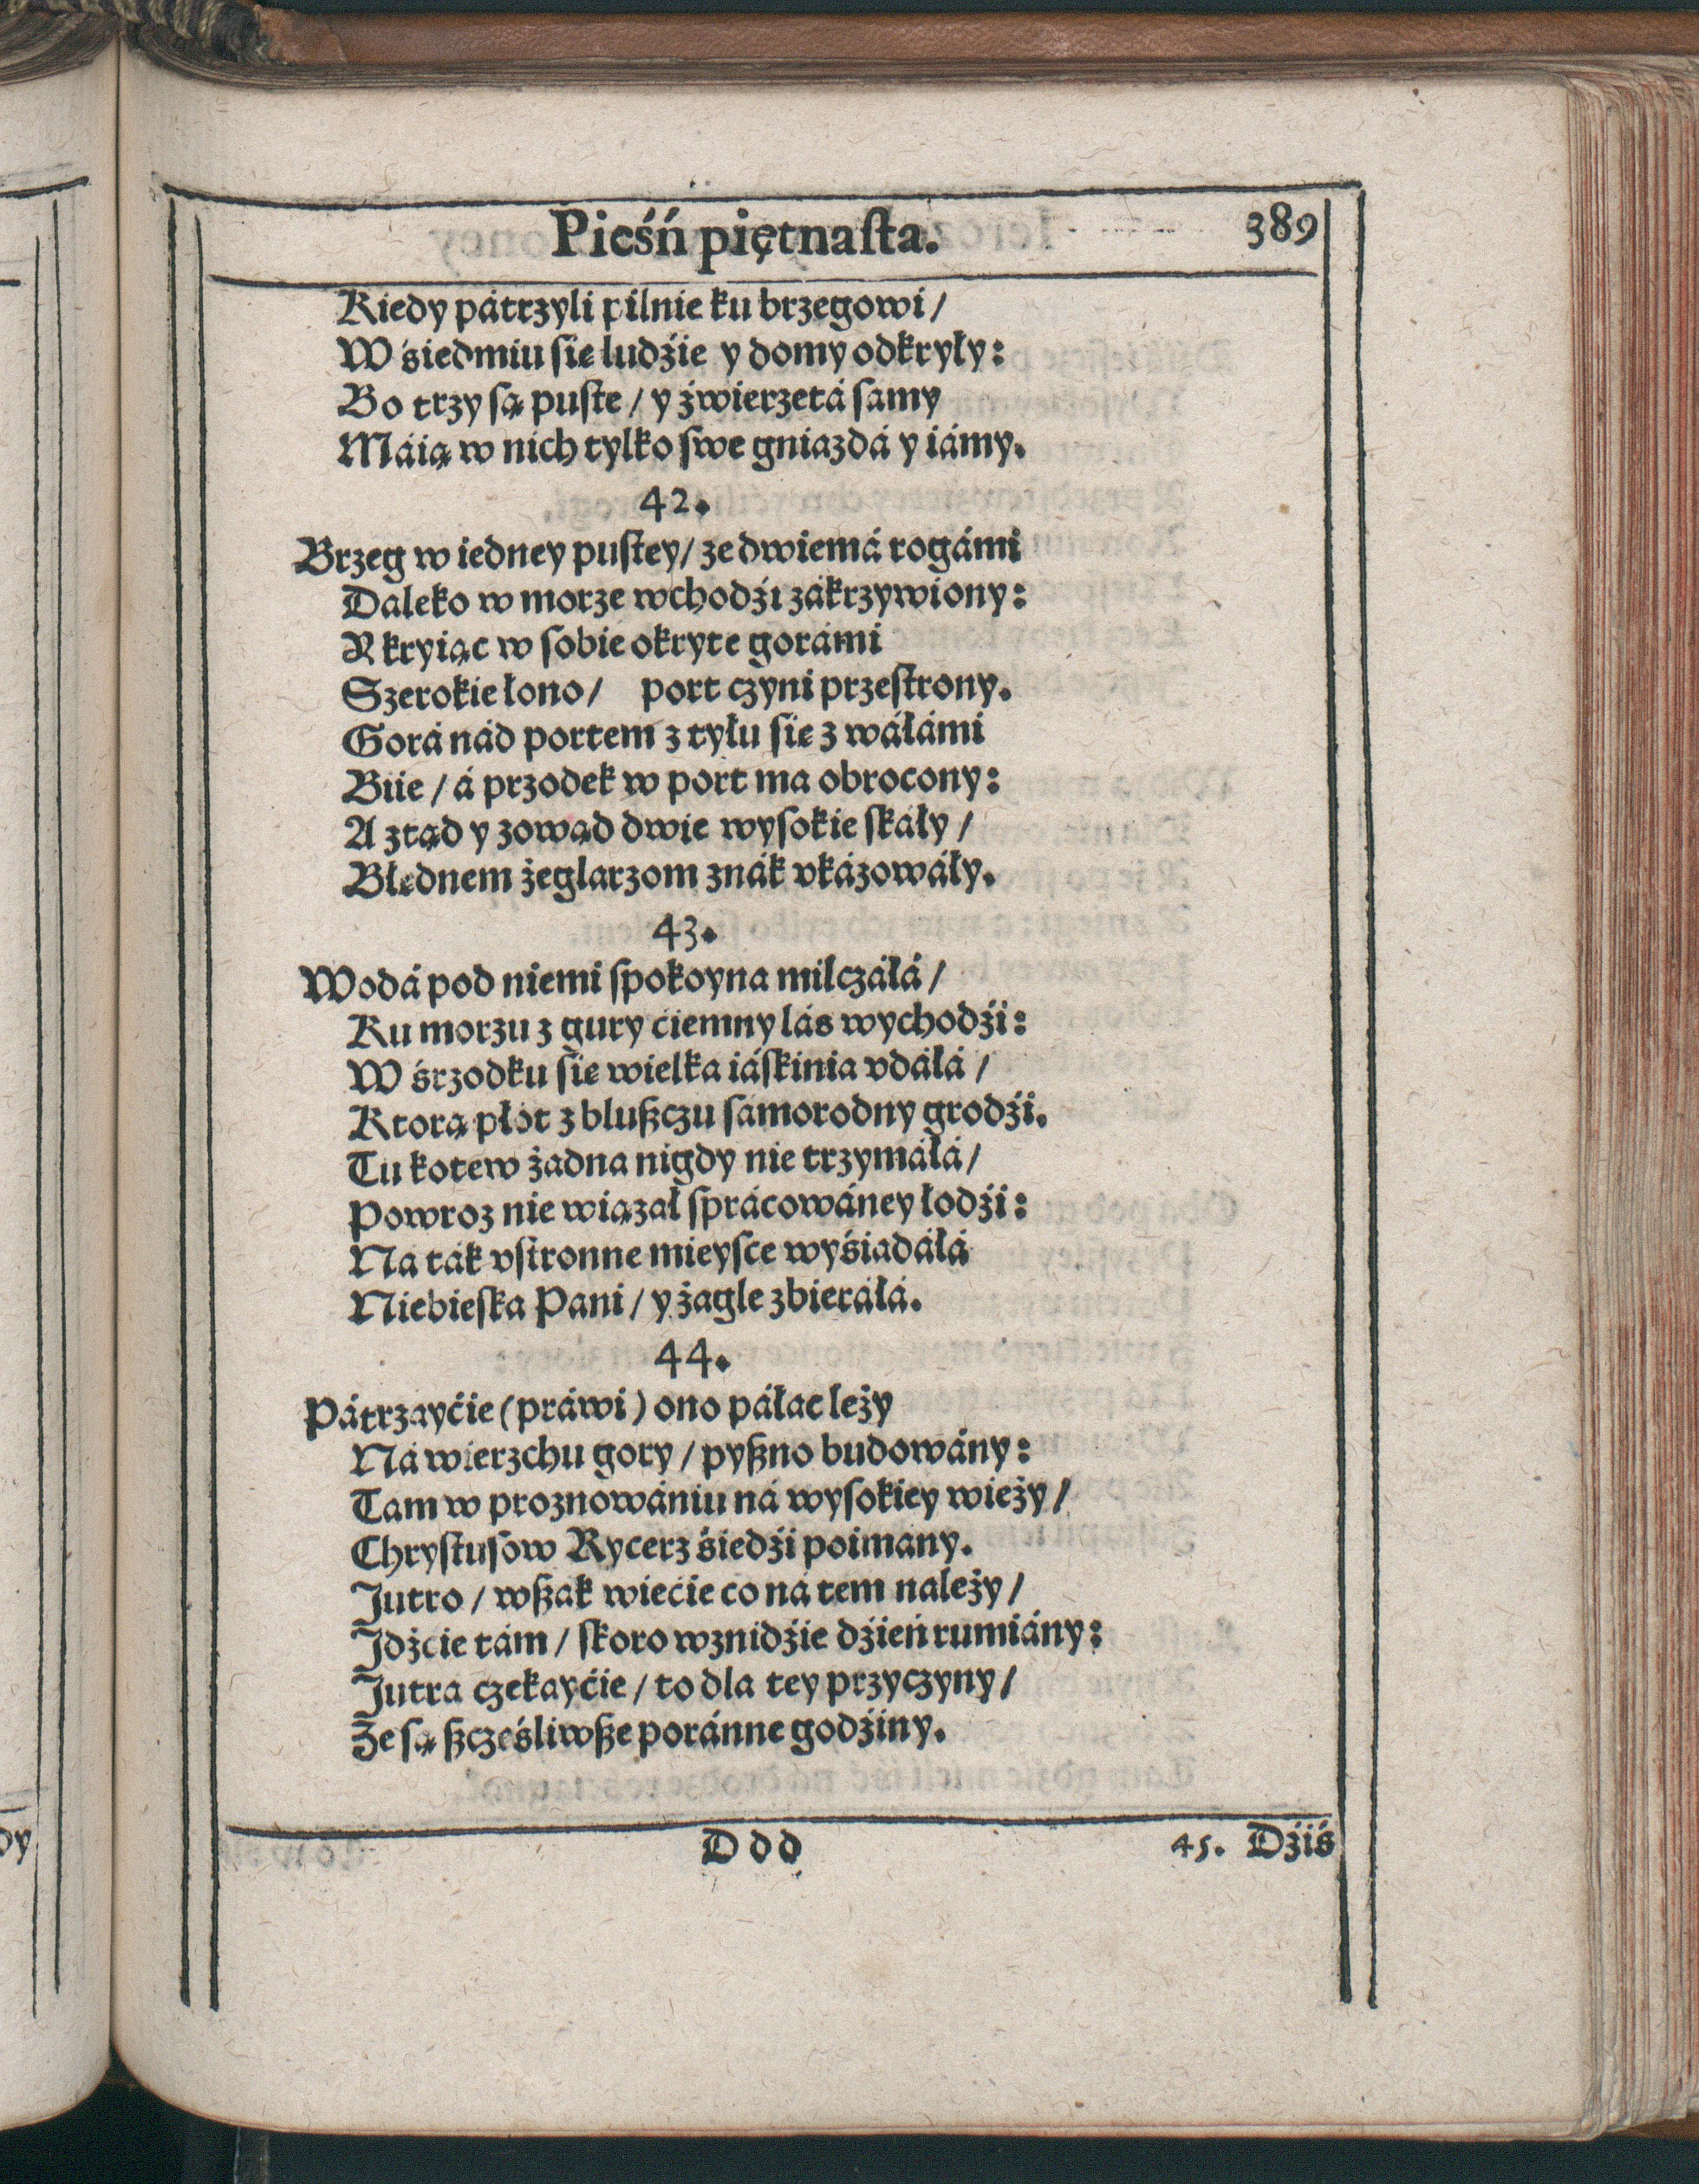 Pieśń piętnaſta. 389
Kiedy pátrzyli pilnie ku brzegowi /
W śiedmiu ſie ludźie y domy odkryły:
Bo trzy ſą puſte / y źwierzetá ſamy
Máią w nich tylko ſwe gniazdá y iámy.
42.
Brzeg w iedney puſtey / ze dwiemá rogámi
Daleko w morze wchodźi zákrzywiony:
A kryiąc w ſobie okryte gorámi
Szerokie łono / port czyni przeſtrony.
Gorá nád portem z tyłu ſie z wáłámi
Biie / á przodek w port ma obrocony:
A ztąd y zowąd dwie wyſokie ſkáły /
Błędnem żeglarzom znák vkázowáły.
43.
Wodá pod niemi ſpokoyna milczáłá /
Ku morzu z gury ćiemny lás wychodźi:
W śrzodku ſie wielka iáſkinia vdáłá /
Ktorą płot z blußczu ſámorodny grodźi.
Tu kotew żadna nigdy nie trzymáłá /
Powroz nie wiązał ſprácowáney łodźi:
Ná ták vſtronne mieyſce wyśiadáłá
Niebieſka Pani / y żagle zbieráłá.
44.
Pátrzayćie (práwi) ono páłac leży
Ná wierzchu gory / pyßno budowány:
Tam w proznowániu ná wyſokiey wieży /
Chryſtuſow Rycerz śiedźi poimány.
Jutro / wßak wiećie co ná tem należy /
Jdźćie tám / ſkoro wznidźie dźień rumiány:
Jutra czekayćie / to dla tey przyczyny /
Że ſą ßcześliwße poránne godźiny.
Ddd 45. Dźiś
dy